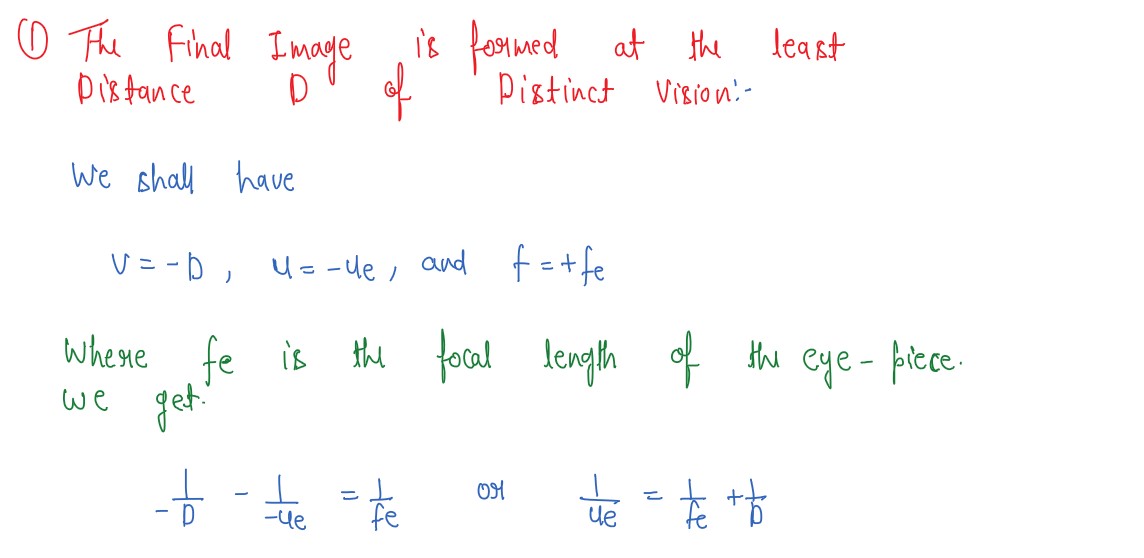 ① The Final Image is formed at the least
Distance D of Distinct Vision:-
We shall have
v = -D, u = -ue, and f = +fe
Where fe is the focal length of the eye-piece.
we get.
1/-D - 1/-ue = 1/fe or 1/ue = 1/fe + 1/D